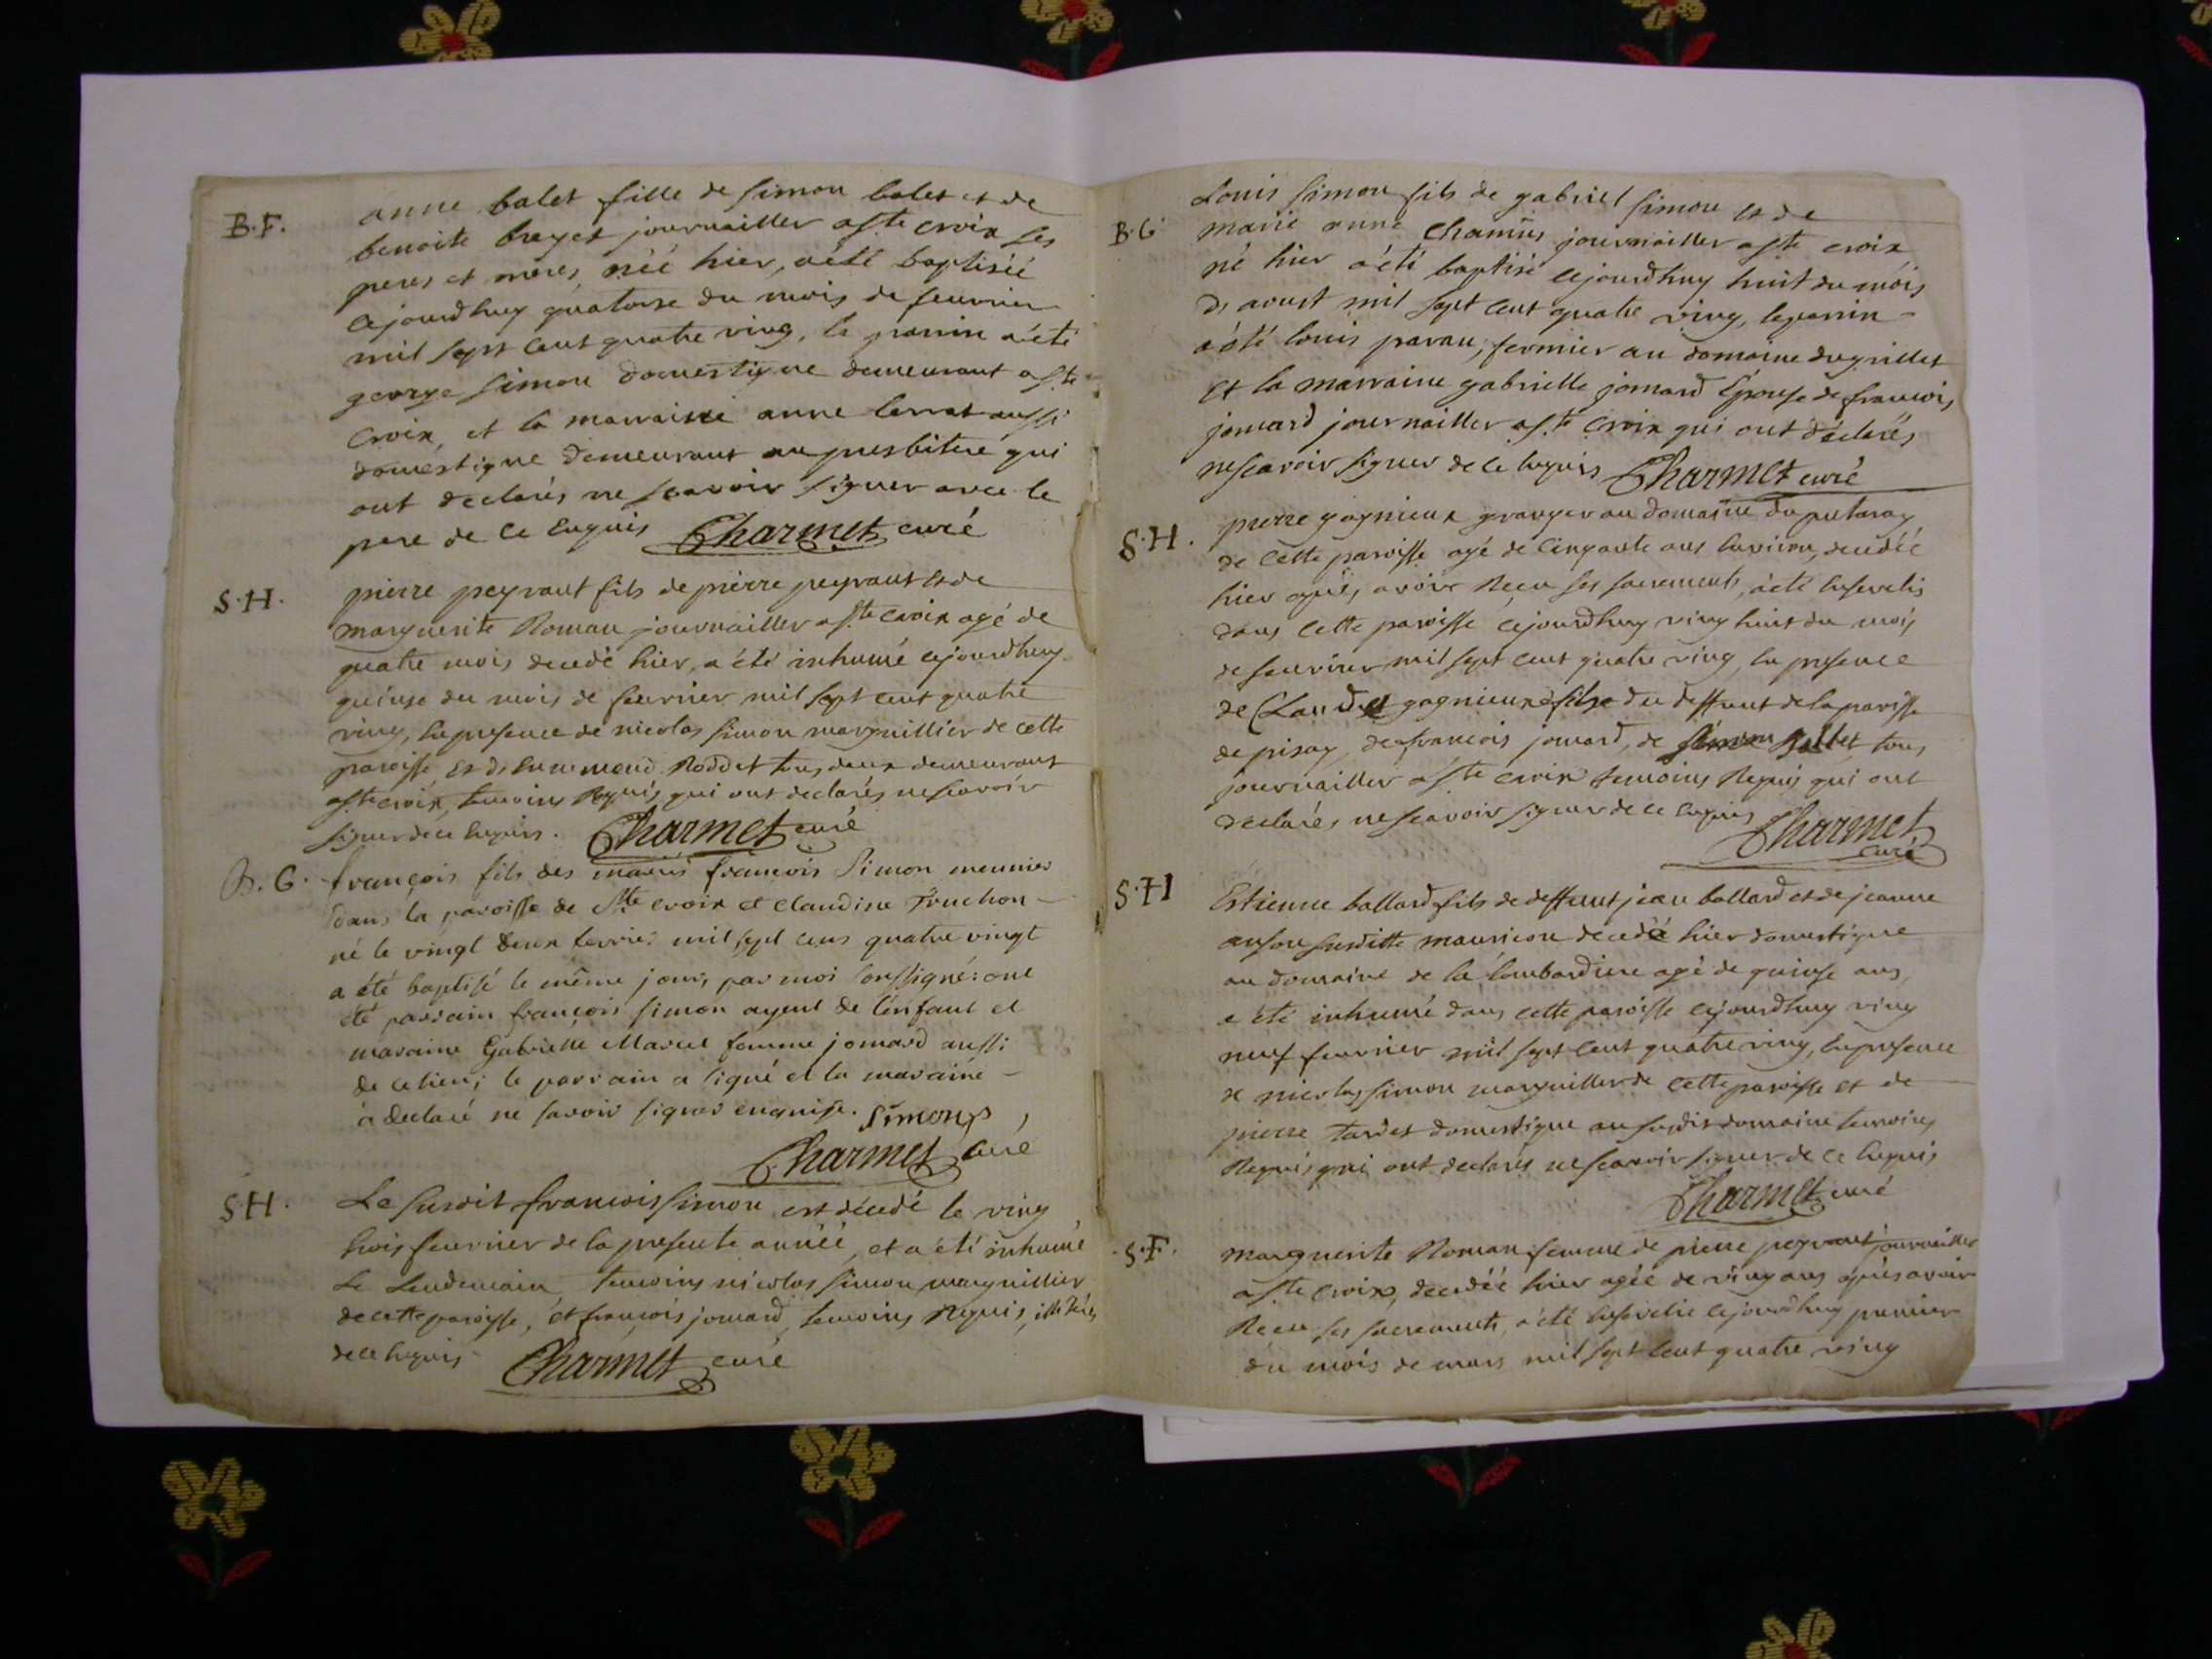 B.F. anne balet fille de simon balet et de
benoite breyet journailler a ste croix ses
peres et meres, néé hier, a été baptiséé
cejourdhuy quatorse du mois de feuvrier
mil sept cent quatre ving, le parrin a été
george simon domestique demeurant a ste
croix, et la marraine anne lerrat aussi
domestique demeurant au presbiteré qui
ont declarés ne scavoir signer avec le
pere de ce enquis Charmet curé
S.H. pierre peyraut fils de pierre peyraut et de
marguerite Roman journailler a ste croix agé de
quatre mois decedé hier, a été inhumé cejourdhuy
quinse du mois de feuvrier mil sept cent quatre
ving, en presence de nicolas simon marguillier de cette
paroisse et d'ennemond Roddet tous deux demeurant
a ste croix, temoins Requis qui ont declarés ne scavoir
signer de ce enquis. Charmet curé
B.G. françois fils des mariés francois Simon meunier
dans la paroisse de Ste croix et Claudine Truchon -
né le vingt deux fevrier mil sept cens quatre vingt
a été baptisé le même jour, par moi soussigné: ont
été parrain françois simon ayeul de l'enfant et
maraine Gabrielle Marcel femme jomard aussi
de ce lieu; le parrain a signé et la maraine -
a declaré ne savoir signer enquise. Simon
Charmet curé
S.H. Le susdit francois simon est décedé le ving
trois feuvrier de la presente annéé, et a été inhumé
Le Lendemain, temoins nicolas simon marguillier
de cette paroisse, et françois jomard, temoins Requis, illiterés
de ce enquis Charmet curé
B.G Louis simon fils de gabriel simon et de
marie anne Chamüs journailler a ste croix
né hier a été baptisé cejourdhuy huit du mois
d'avust mil sept cent quatre ving, le parrin -
a été louis paran, fermier au domaine du grillet
et la marraine gabrielle jomard Épouse de francois
jomard journailler a ste croix qui ont déclarés
ne scavoir signer de ce enquis Charmet curé
S.H. pierre gagnieux granger au domaine du
de cette paroisse agé de cinquante ans environ, decedéé
hier après avoir Recu ses sacrements, a été ensevelis
dans cette paroisse cejourdhuy ving huit du mois
de feuvrier mil sept cent quatre ving, en presence
de Claude gagnieux fils du deffunt de la paroisse
de pisay, de francois jomard, de simon Ballet, tous
journailler a ste croix temoins Requis qui ont
declarés ne scavoir signer de ce enquis Charmet
curé
S.H Estienne ballard fils de deffunt jean ballard et de jeanne
mauricon décedé hier domestique
au domaine de la lombardiere agé de quinse ans,
a été inhumé dans cette paroisse cejourdhuy ving
neuf feuvrier mil sept cent quatre ving, en presence
de nicolas simon marguiller de cette paroisse et de
pierre tardet domestique au susdit domaine temoins
Requis qui ont declarés ne scavoir signer de ce enquis
Charmet curé
S.F. marguerite Roman femme de pierre peyraut journailler
a ste croix, decedéé hier agée de ving ans après avoir
Recu ses sacrements, a été ensevelie cejourdhuy premier
du mois de mars mil sept cent quatre ving